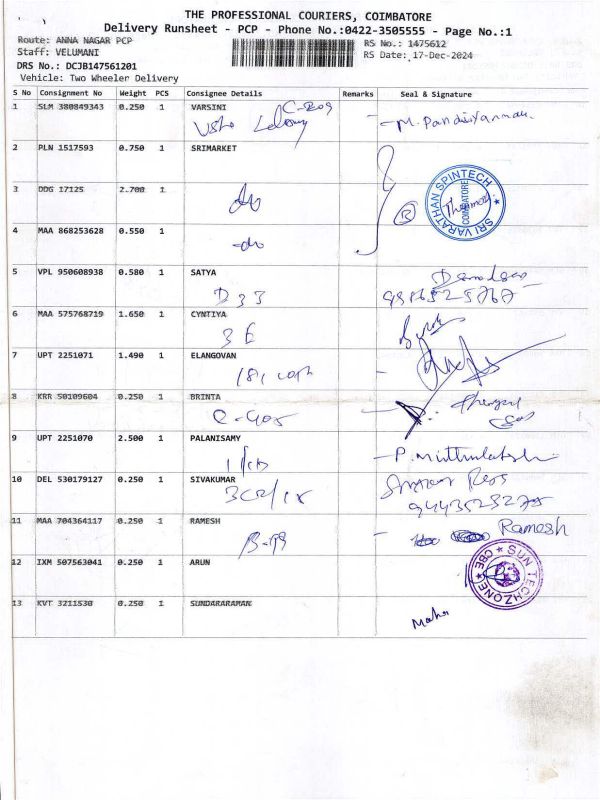 THE PROFESSIONAL COURIERS, COIMBATORE
Delivery Runsheet - PCP - Phone No.:0422-3505555 - Page No.:1
Route: ANNA NAGAR PCP
RS No.: 1475612
Staff: VELUMANI
RS Date: 17-Dec-2024
DRS No.: DCJB147561201
Vehicle: Two Wheeler Delivery
S No Consignment No Weight PCS Consignee Details Remarks Seal & Signature
1 SLM 380849343 0.250 1 VARSINI
2 PLN 1517593 0.750 1 SRIMARKET
3 DDG 17125 2.700 1
SRI VARATHAN SPINTECH COIMBATORE
4 MAA 868253628 0.550 1
5 VPL 950608938 0.580 1 SATYA
D 33
6 MAA 575768719 1.650 1 CYNTIYA
3 E
7 UPT 2251071 1.490 1 ELANGOVAN
8 KRR 50109604 0.250 1 BRINTA
9 UPT 2251070 2.500 1 PALANISAMY
10 DEL 530179127 0.250 1 SIVAKUMAR
11 MAA 704364117 0.250 1 RAMESH
Ramesh
B-99
12 IXM 507563041 0.250 1 ARUN
SUN TECHZONE CBE
13 KVT 3211530 0.250 1 SUNDARARAMAN
Maha